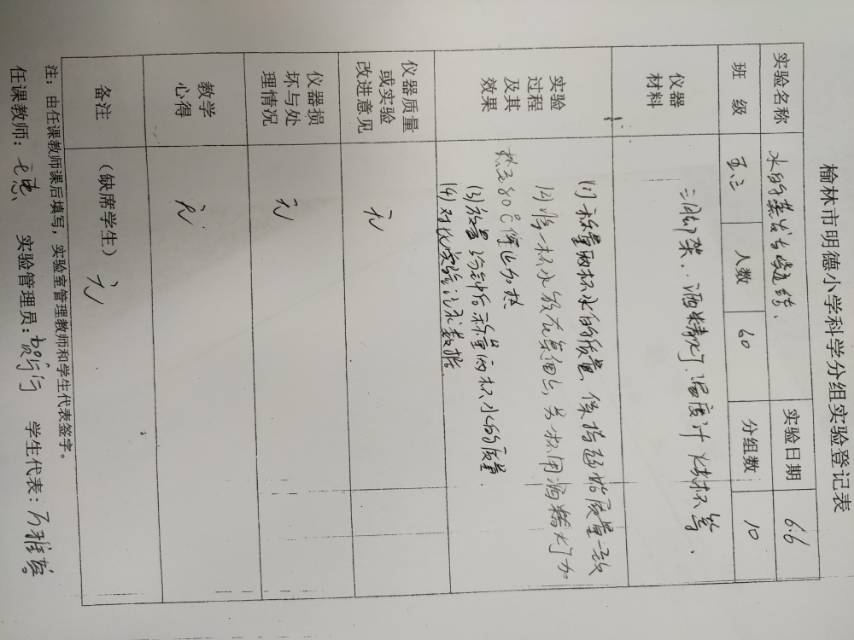 榆林市明德小学科学分组实验登记表
实验名称 水的蒸发与凝结、 实验日期 6.6
班 级 五、三 人数 60 分组数 10
仪器
材料
三脚架、酒精灯、温度计 烧杯等、
实验
过程
及其
效果
(1) 称量两杯水的质量、保持起始质量一致
(2) 将一杯水放在桌面上,另一杯用酒精灯加
热至80℃停止加热
(3) 放置 分钟后称量两杯水的质量.
(4) 对比实验记录数据.
仪器质量
或实验
改进意见
无
仪器损
坏与处
理情况
无
教学
心得
无
备注 (缺席学生) 无
注:由任课教师课后填写,实验室管理教师和学生代表签字。
任课教师: 实验管理员: 学生代表: